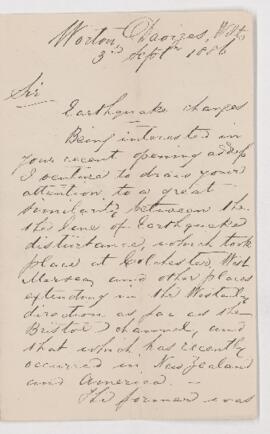 Worton, Devizes, Wilts
3rd Septr 1886
Sir
Earthquake changes
Being interested in
your recent opening address
I venture to draw your
attention to a great
similarity between the
the line of Earthquake
disturbance, which took
place at Colchester, West
Mersea, and other places
extending in the Westerly
direction as far as the
Bristol Channel, and
that which has recently
occurred in New Zealand
and America. —
The former was